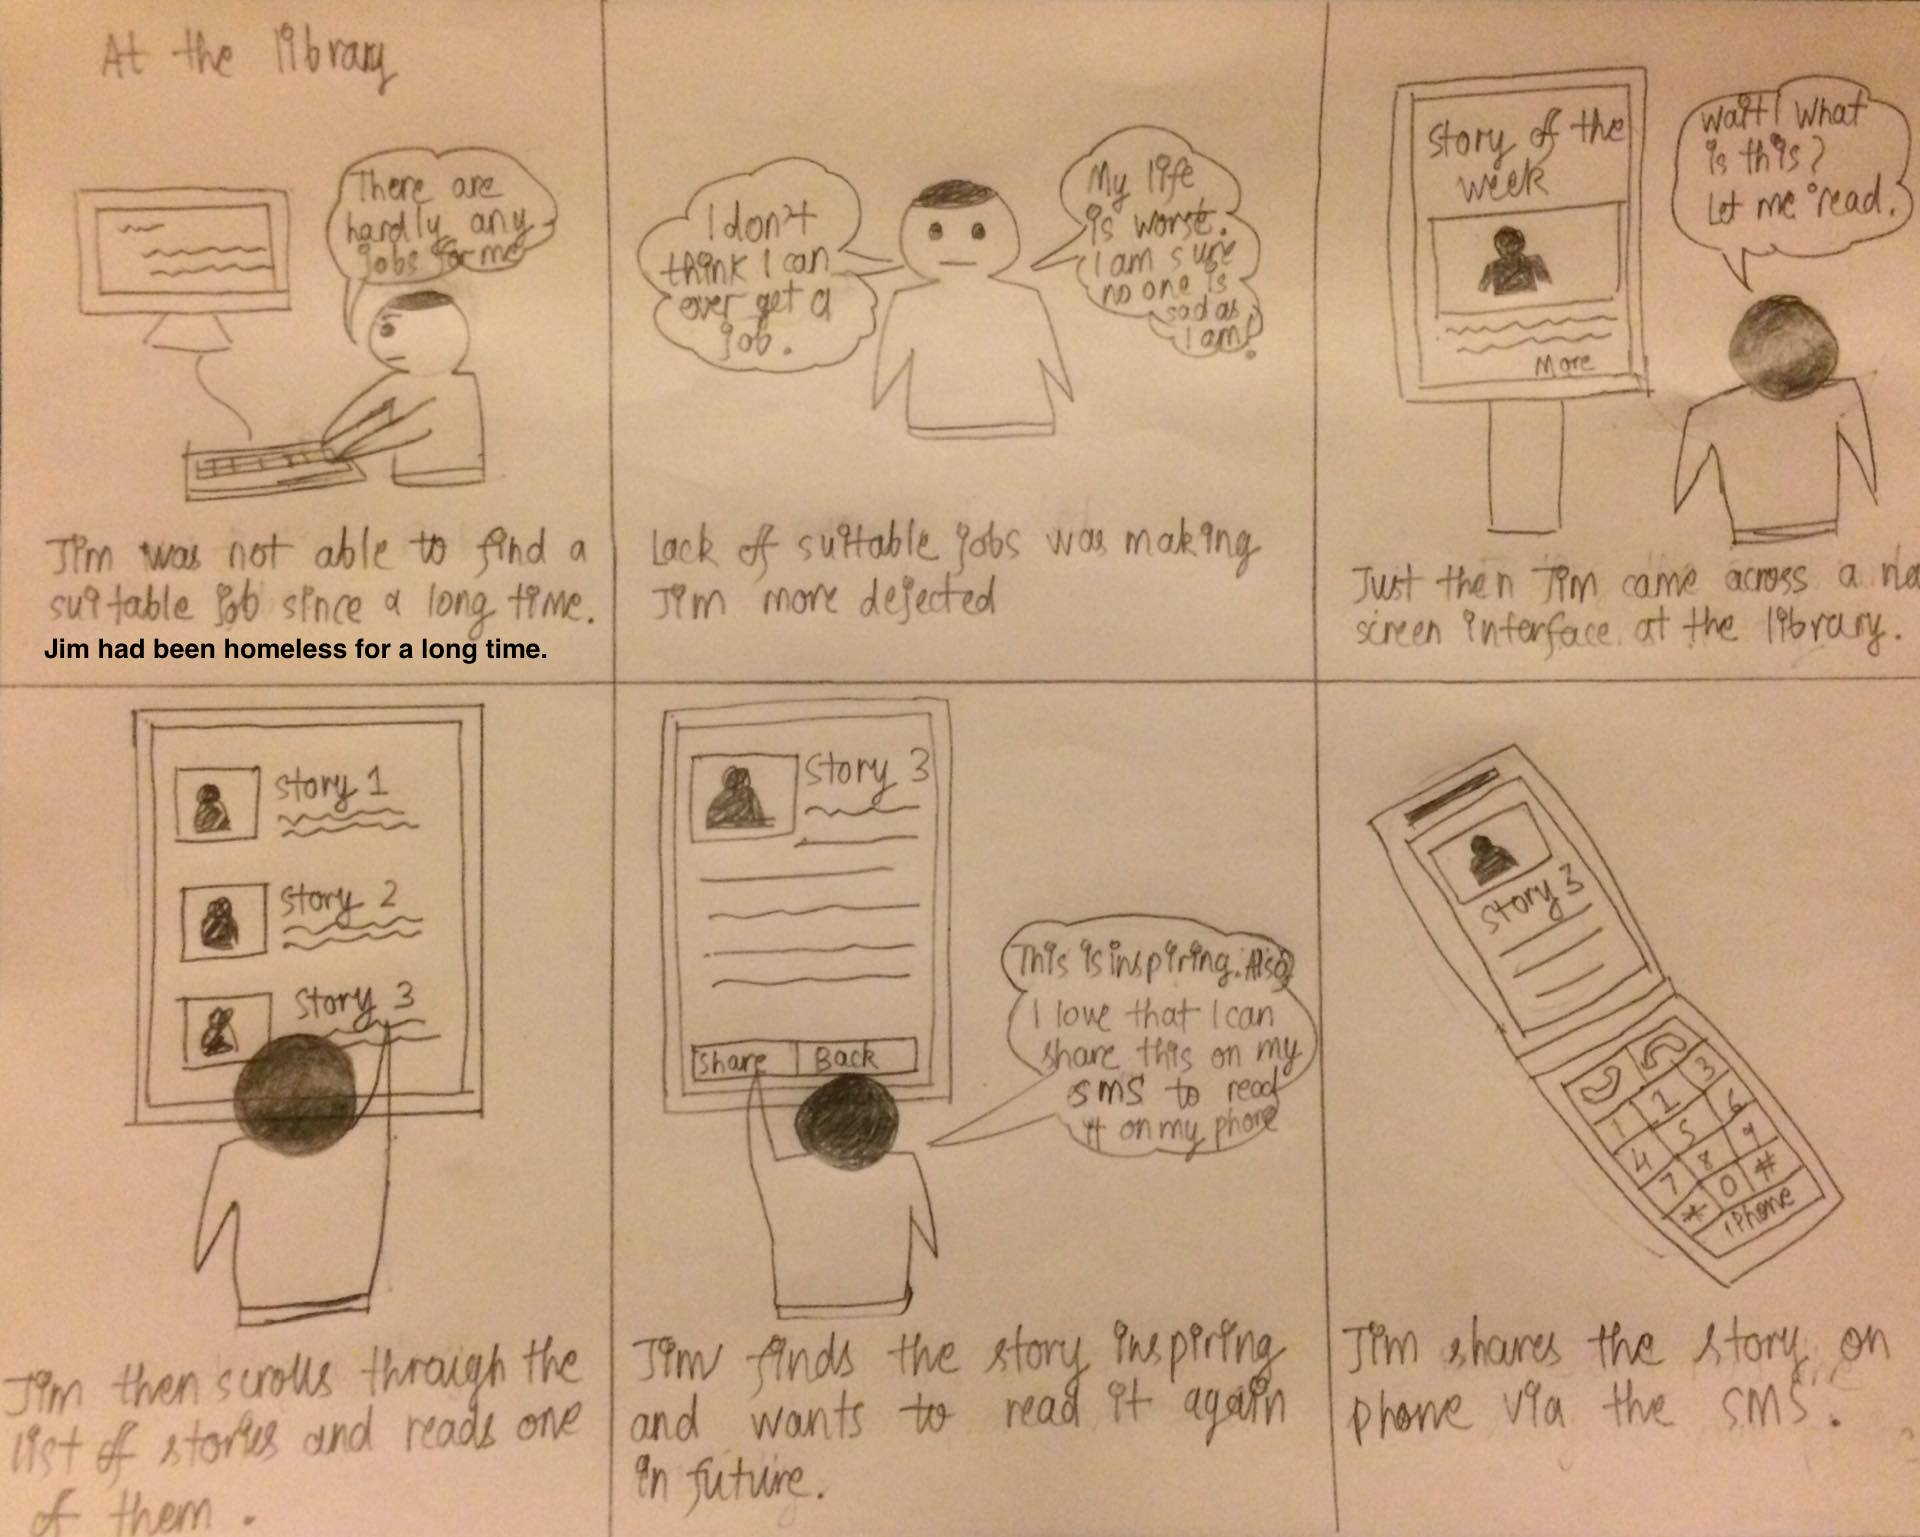 At the library
There are
hardly any
jobs for me
Jim was not able to find a
suitable job since a long time.
Jim had been homeless for a long time.
I don't
think I can
ever get a
job.
My life
is worst.
I am sure
no one is
sad as
I am!
Lack of suitable jobs was making
Jim more dejected
story of the
week
More
Wait! What
is this?
Let me read.
Just then Jim came across a
screen interface at the library.
Story 1
Story 2
Story 3
Jim then scrolls through the
list of stories and reads one
of them.
Story 3
Share Back
This is inspiring. Also
I love that I can
share this on my
SMS to read
it on my phone
Jim finds the story inspiring
and wants to read it again
in future.
Story 3
3
1 2 6
4 5 9
7 8 #
* 0
iPhone
Jim shares the story on
phone via the SMS.